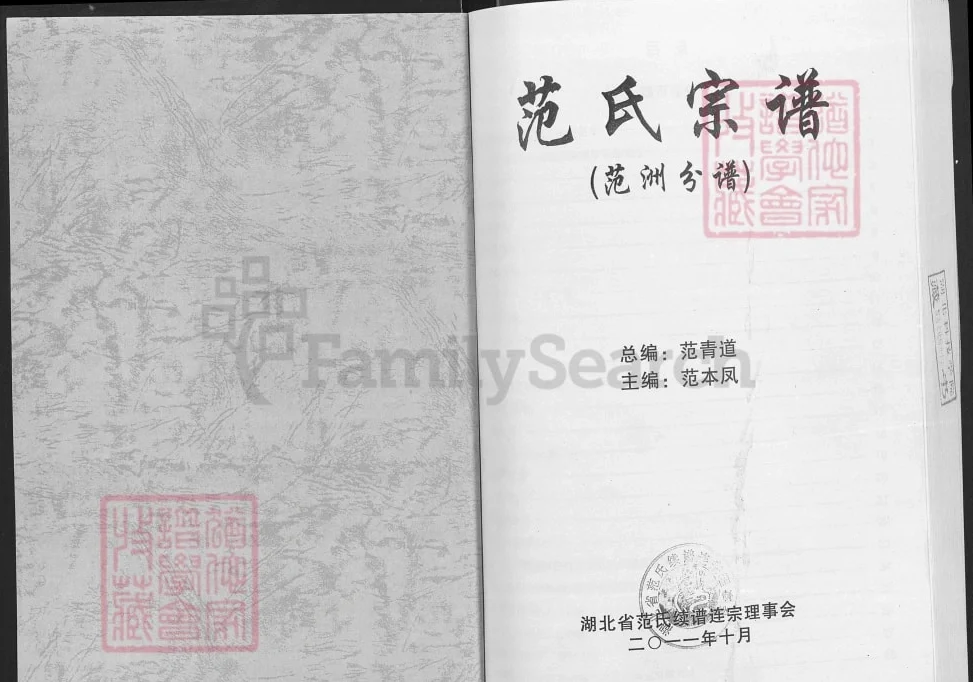 范氏宗谱
(范洲分谱)
总编：范青道
主编：范本凤
湖北省范氏续谱连宗理事会
二〇一一年十月
FamilySearch